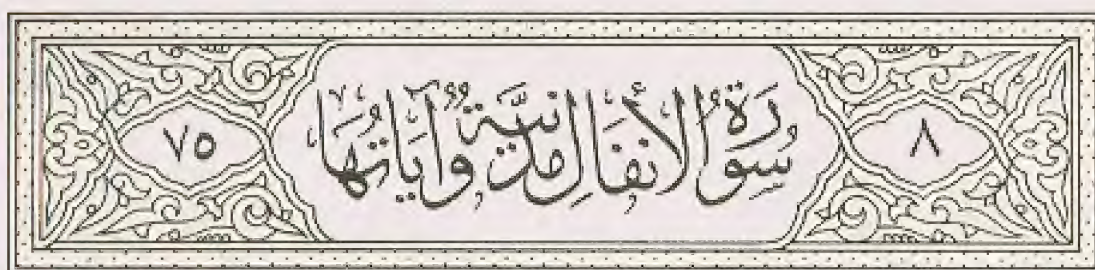 ٨ سُورَةُ الأَنفَالِ مَدَنِيَّةٌ وَآيَاتُهَا ٧٥